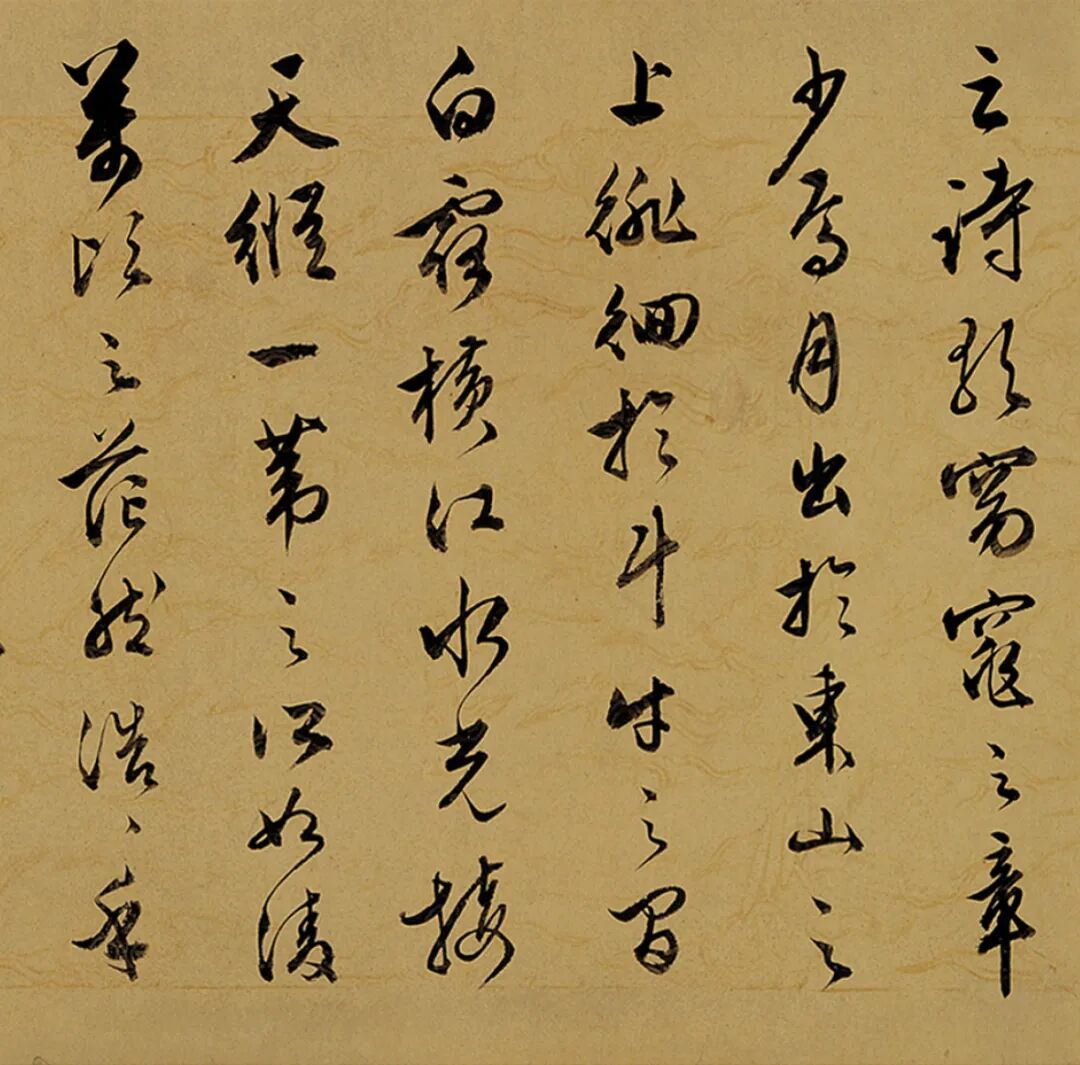 之詩歌窈窕之章
少焉月出於東山之
上徘徊於斗牛之間
白露橫江水光接
天縱一葦之所如淩
萬頃之茫然浩〻乎